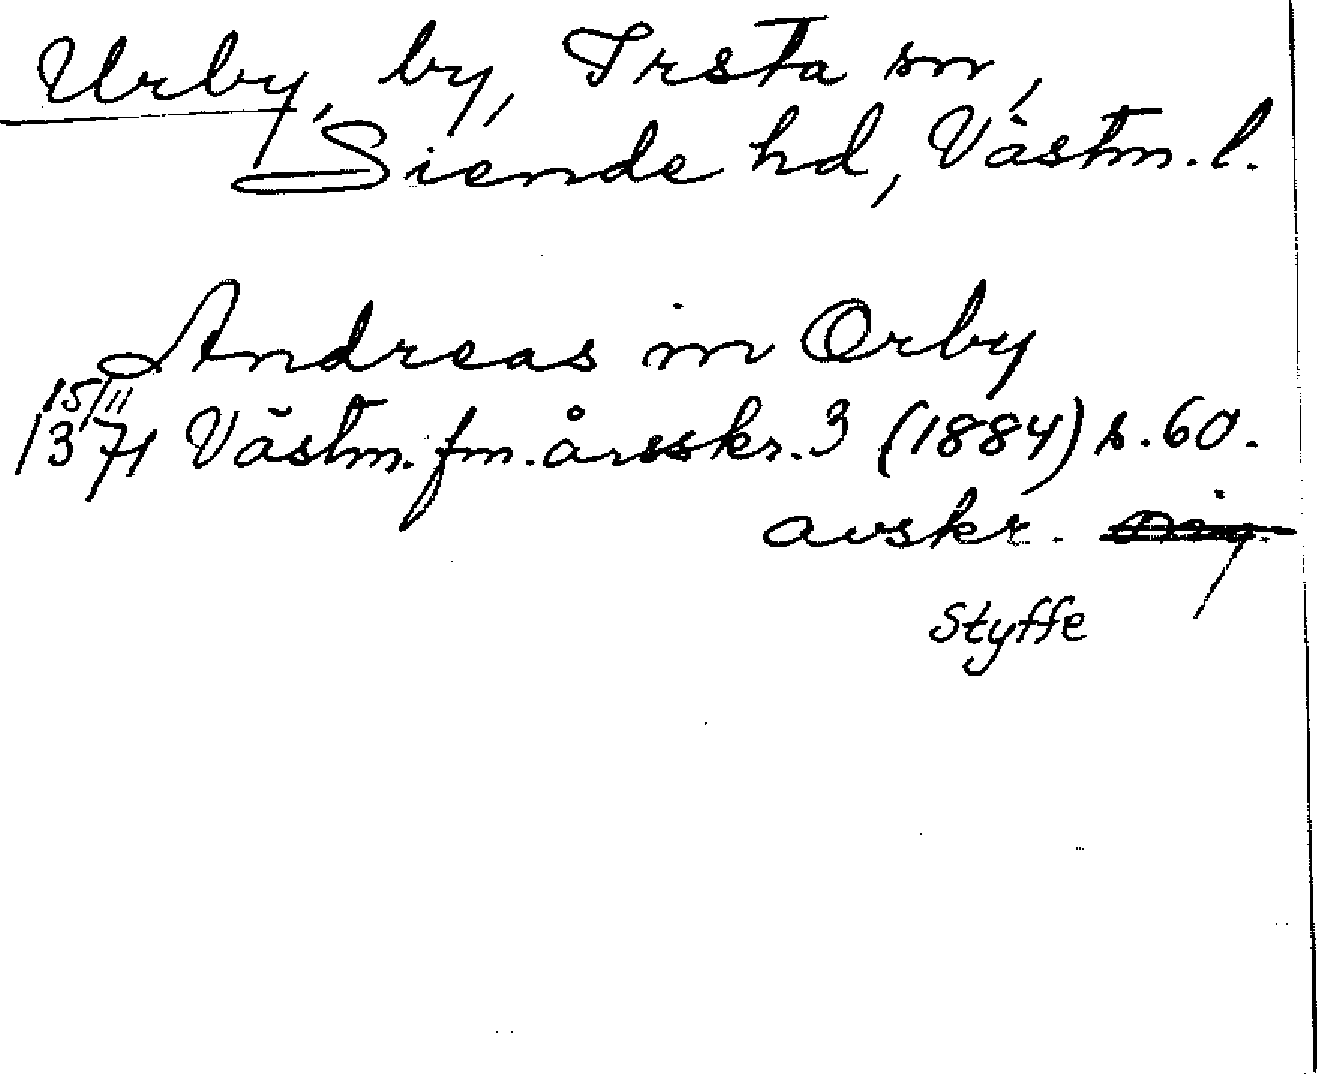 Urby, by, Irsta sn,
Siende hd, Västm. l.
Andreas in Orby
15/11
1371 Västm. fm. årsskr. 3 (1884) s. 60.
avskr. orig.
Styffe